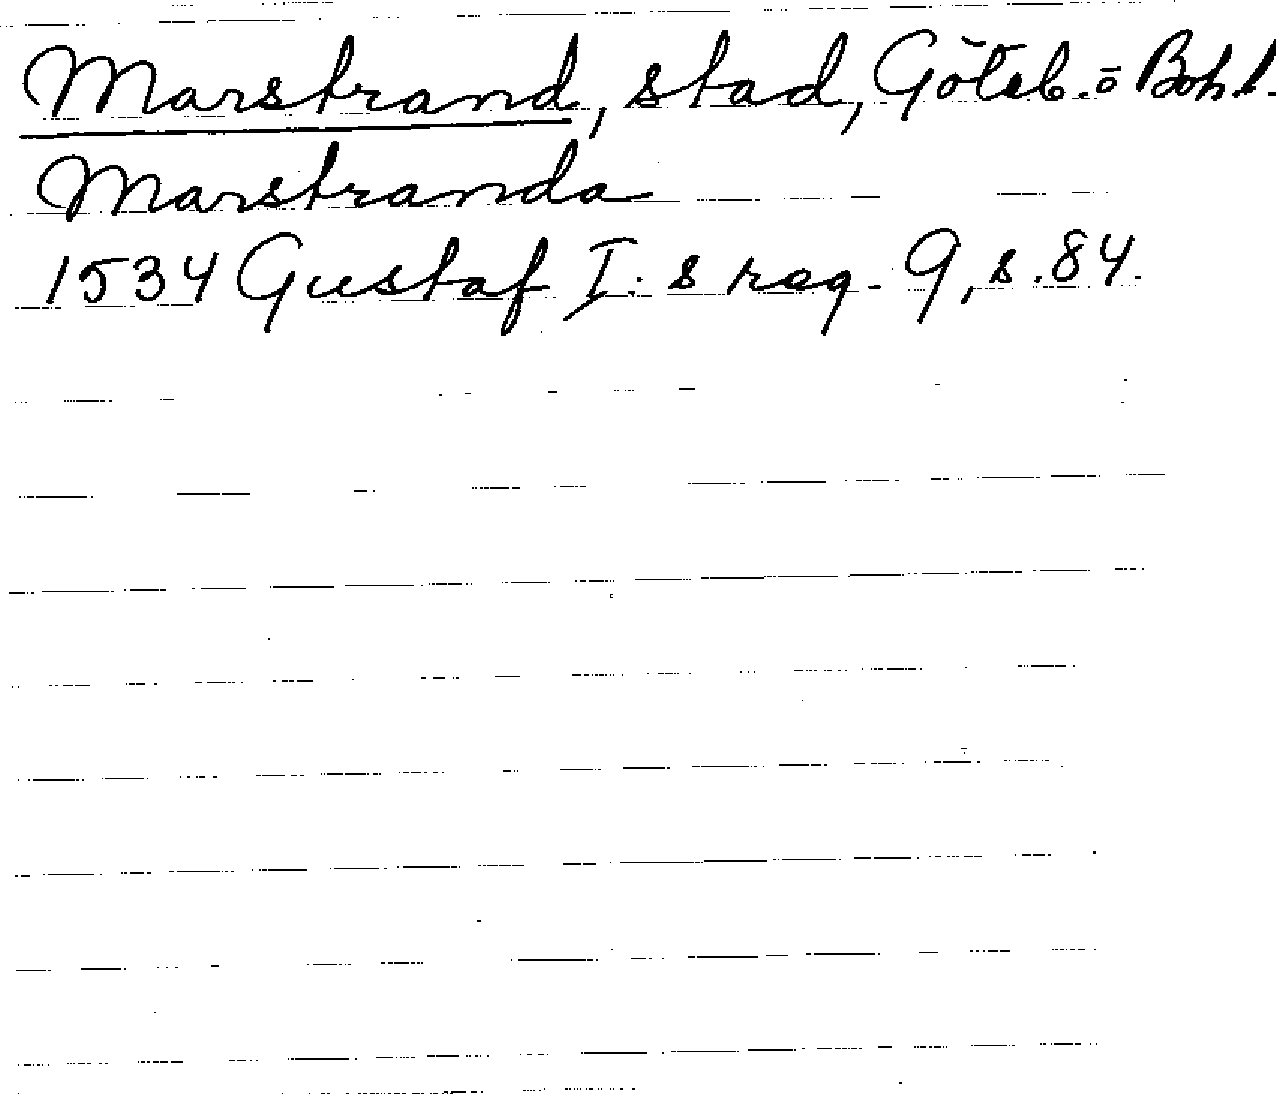 Marstrand, stad, Göteb. o Boh l.
Marstranda
1534 Gustaf I: s reg. 9, s. 84.